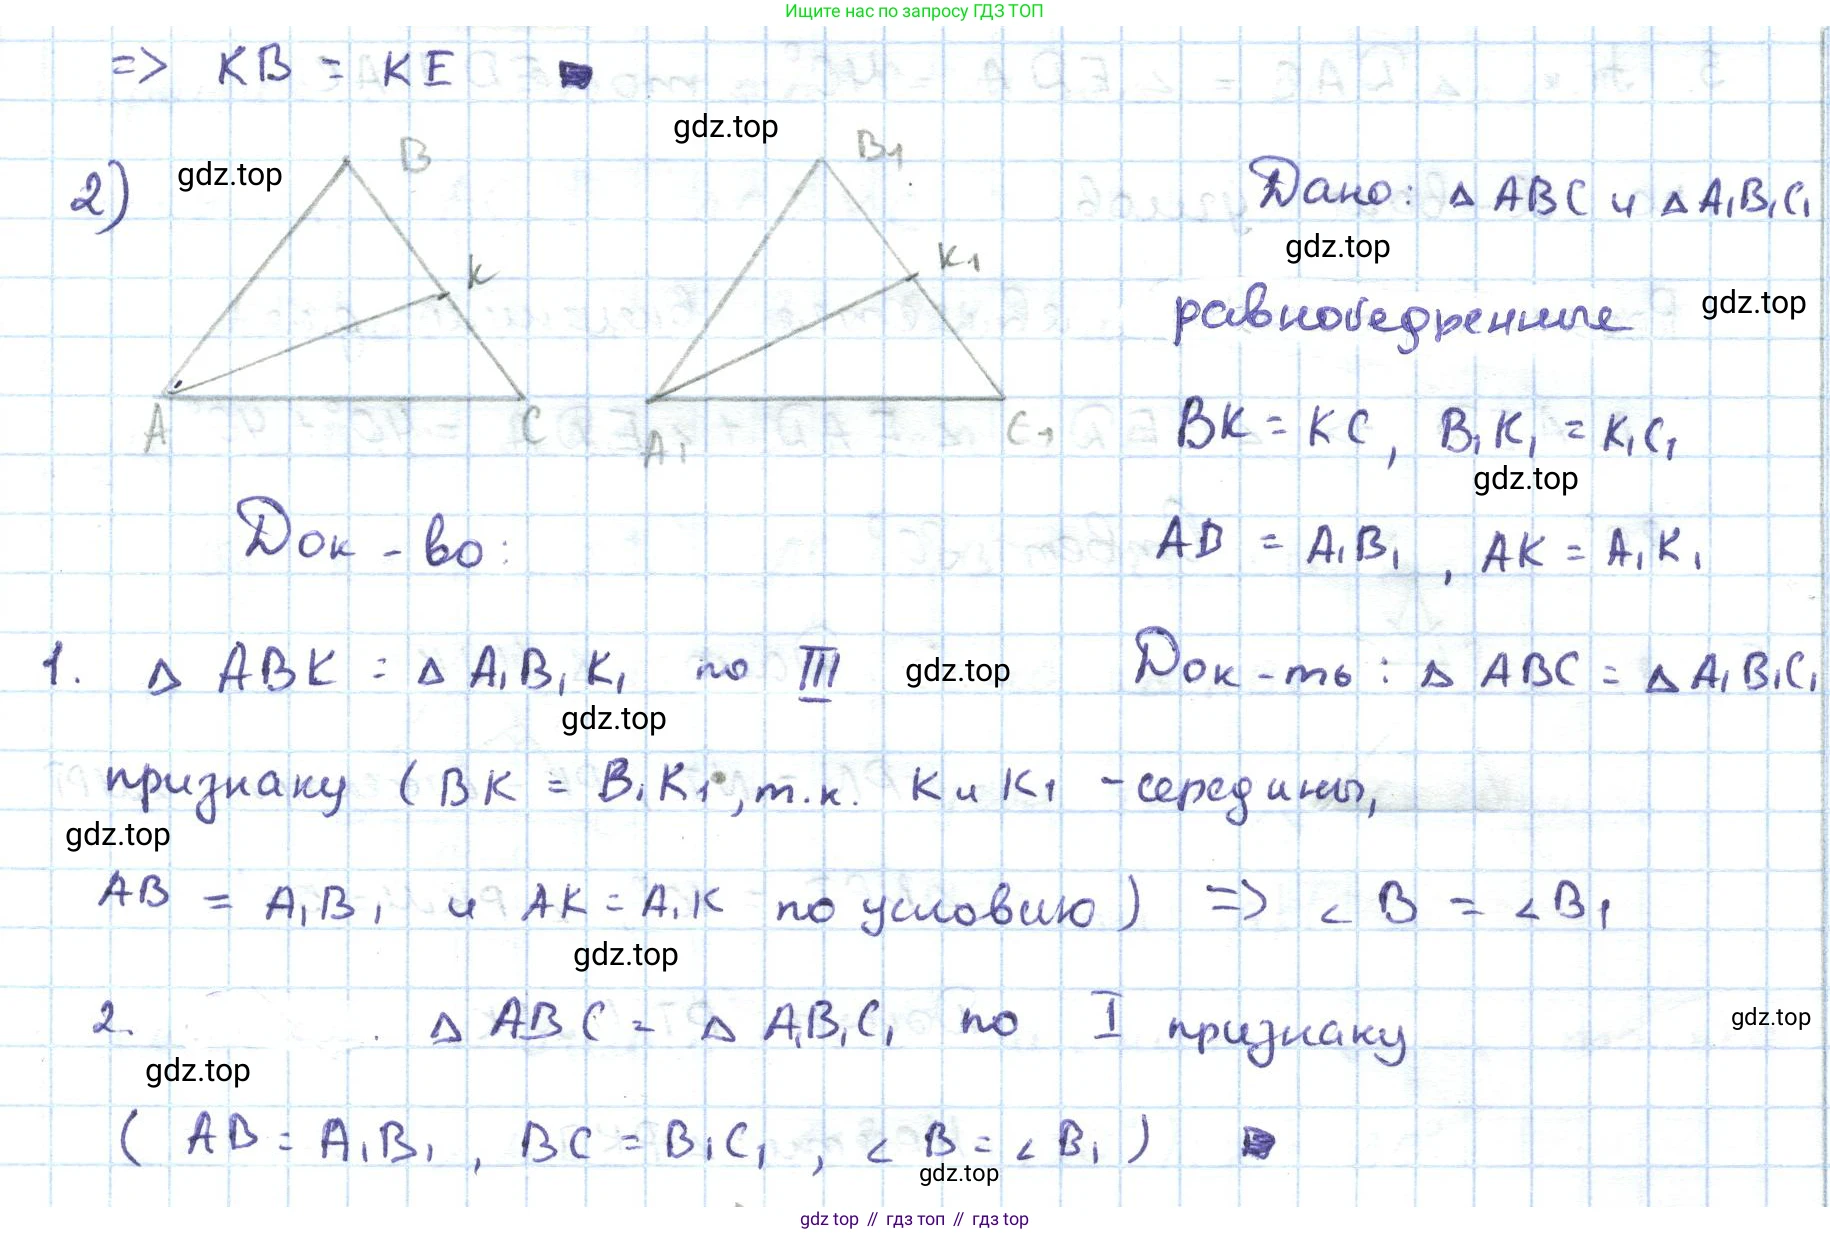 Ищите нас по запросу ГДЗ ТОП
=> KB = KE
gdz.top
2) gdz.top B B1 K K1 A C A1 C1
Дано: △ ABC и △ A₁B₁C₁
gdz.top
равнобедренные gdz.top
BK = KC, B₁K₁ = K₁C₁
gdz.top
AB = A₁B₁, AK = A₁K₁
Док-во:
Док-ть: △ ABC = △ A₁B₁C₁
1. △ ABK = △ A₁B₁K₁ по III gdz.top
gdz.top
признаку (BK = B₁K1, т.к. K и K1 - середины,
gdz.top
AB = A₁B₁ и AK = A₁K по условию) => ∠ B = ∠B1
gdz.top
2. △ ABC = △ A₁B₁C₁ по I признаку gdz.top
gdz.top
( AB = A₁B₁, BC = B₁C₁, ∠ B = ∠ B₁ )
gdz.top
gdz top // гдз топ // gdz top